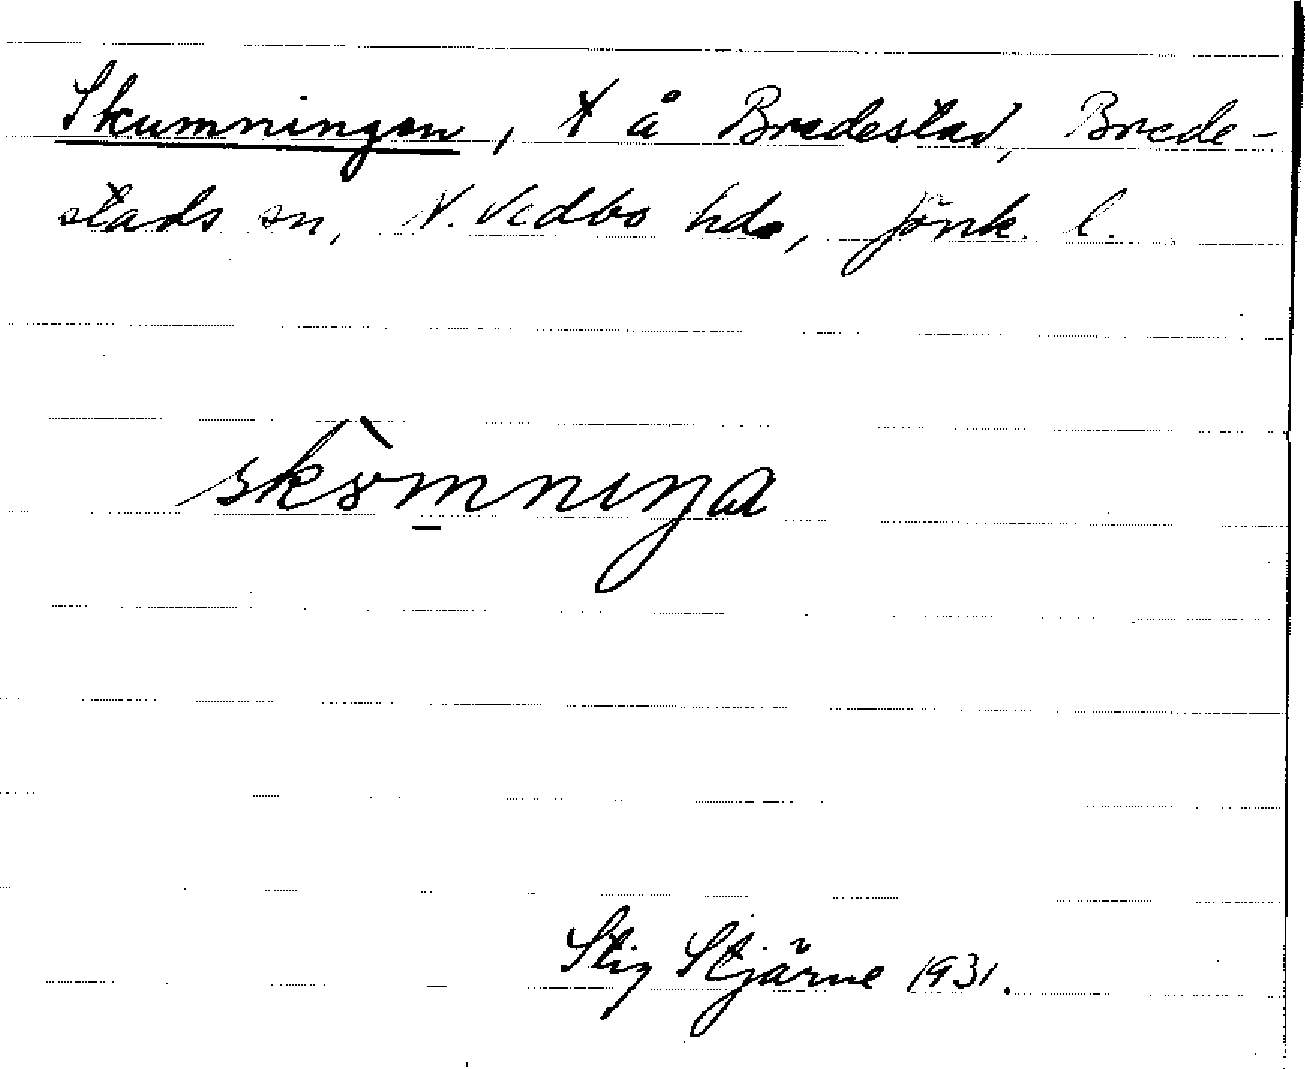 Skumningen, t å Bredestad, Brede-
stads sn, N. Vedbo hds, Jönk. l.
skò̀mniŋa
Stig Stjärne 1931.